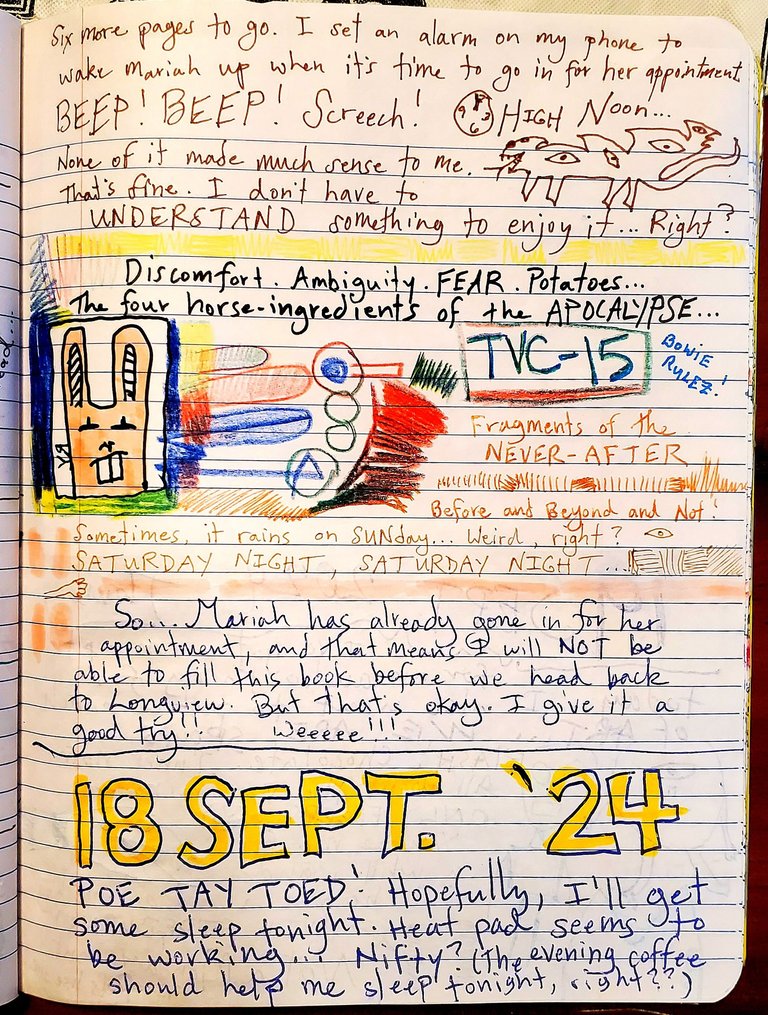 Six more pages to go. I set an alarm on my phone to
wake Mariah up when it's time to go in for her appointment.
BEEP! BEEP! Screech!
HIGH NOON...
None of it made much sense to me.
That's fine. I don't have to
UNDERSTAND something to enjoy it... Right?
Discomfort. Ambiguity. FEAR. Potatoes...
The four horse-ingredients of the APOCALYPSE...
TVC-15
BOWIE
RULEZ!
Fragments of the
NEVER-AFTER
Before and Beyond and Not!
Sometimes, it rains on SUNday... Weird, right?
SATURDAY NIGHT, SATURDAY NIGHT...
So... Mariah has already gone in for her
appointment, and that means I will NOT be
able to fill this book before we head back
to Longview. But that's okay. I give it a
good try!! Weeeee!!!
18 SEPT. '24
POE TAY TOED! Hopefully, I'll get
some sleep tonight. Heat pad seems to
be working... Nifty? (The evening coffee
should help me sleep tonight, right??)